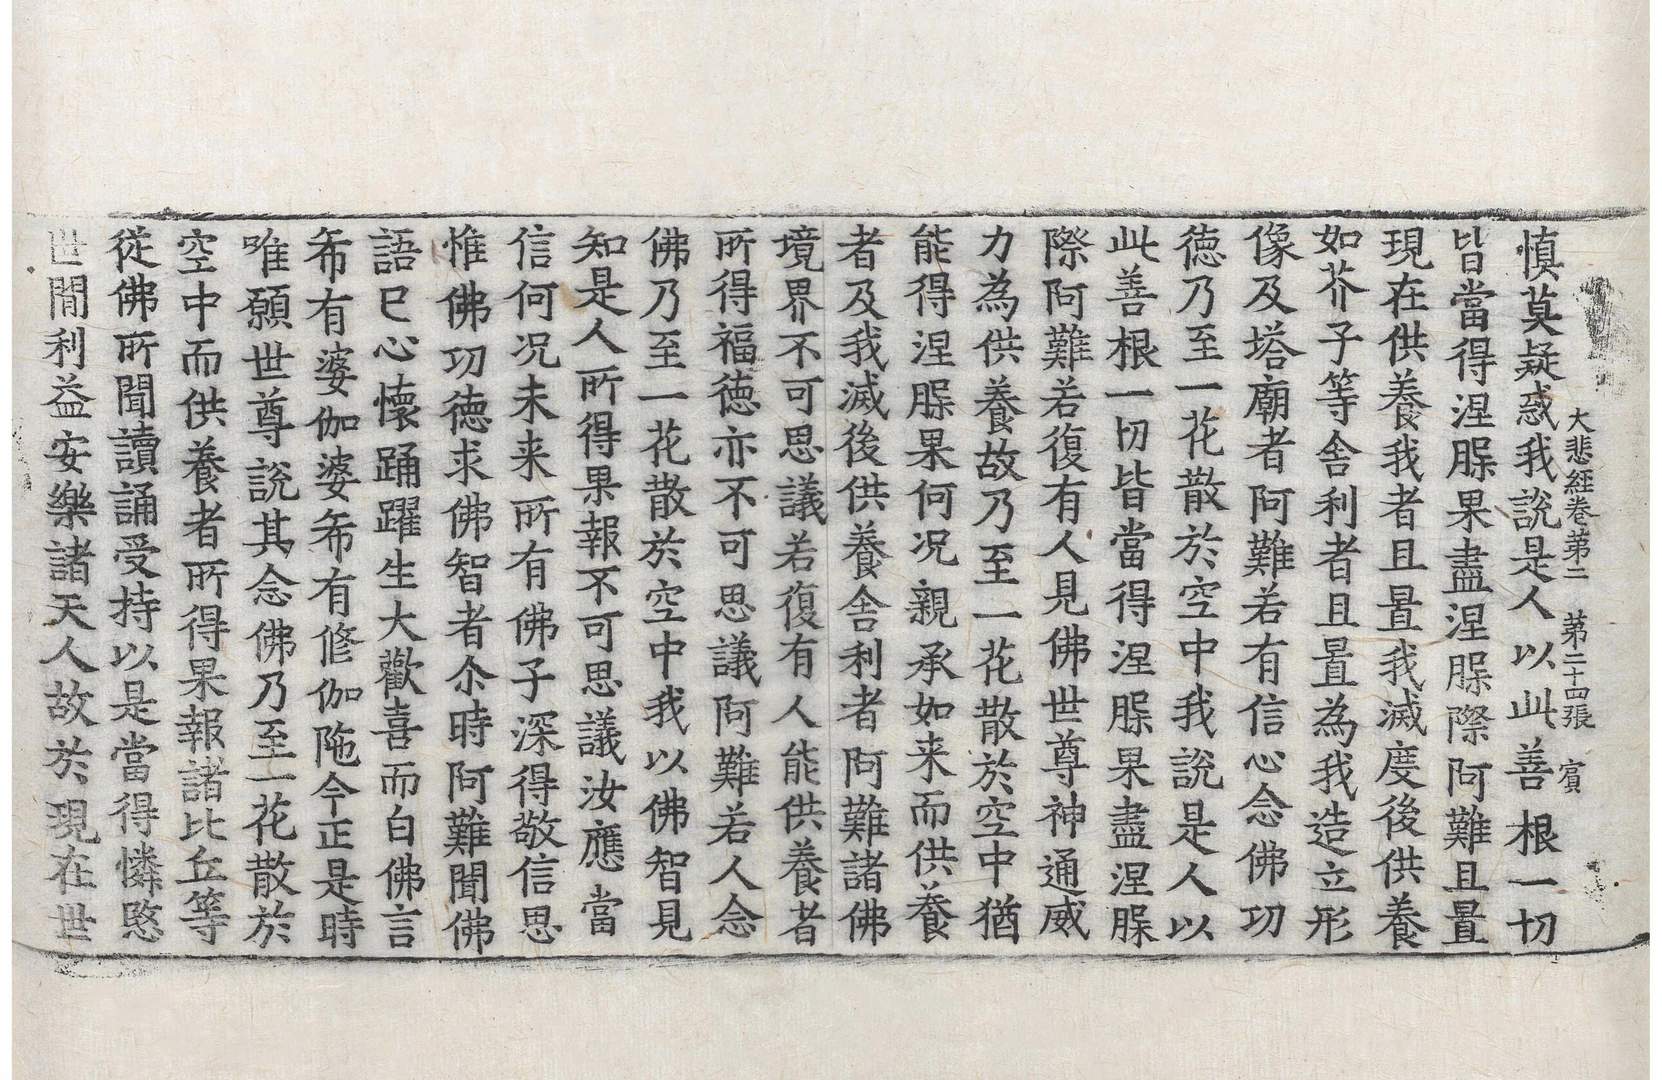 大悲経卷第二 第二十四張 賔
慎莫疑惑我說是人以此善根一切
皆當得涅槃果盡涅槃際阿難且置
現在供養我者且置我滅度後供養
如芥子等舎利者且置為我造立形
像及塔廟者阿難若有信心念佛功
徳乃至一花散於空中我說是人以
此善根一切皆當得涅槃果盡涅槃
際阿難若復有人見佛世尊神通威
力為供養故乃至一花散於空中猶
能得涅槃果何况親承如来而供養
者及我滅後供養舎利者阿難諸佛
境界不可思議若復有人能供養者
所得福徳亦不可思議阿難若人念
佛乃至一花散於空中我以佛智見
知是人所得果報不可思議汝應當
信何况未来所有佛子深得敬信思
惟佛功徳求佛智者尒時阿難聞佛
語已心懷踊躍生大歡喜而白佛言
希有婆伽婆希有修伽陁今正是時
唯願世尊說其念佛乃至一花散於
空中而供養者所得果報諸比丘等
從佛所聞讀誦受持以是當得憐愍
世間利益安樂諸天人故於現在世